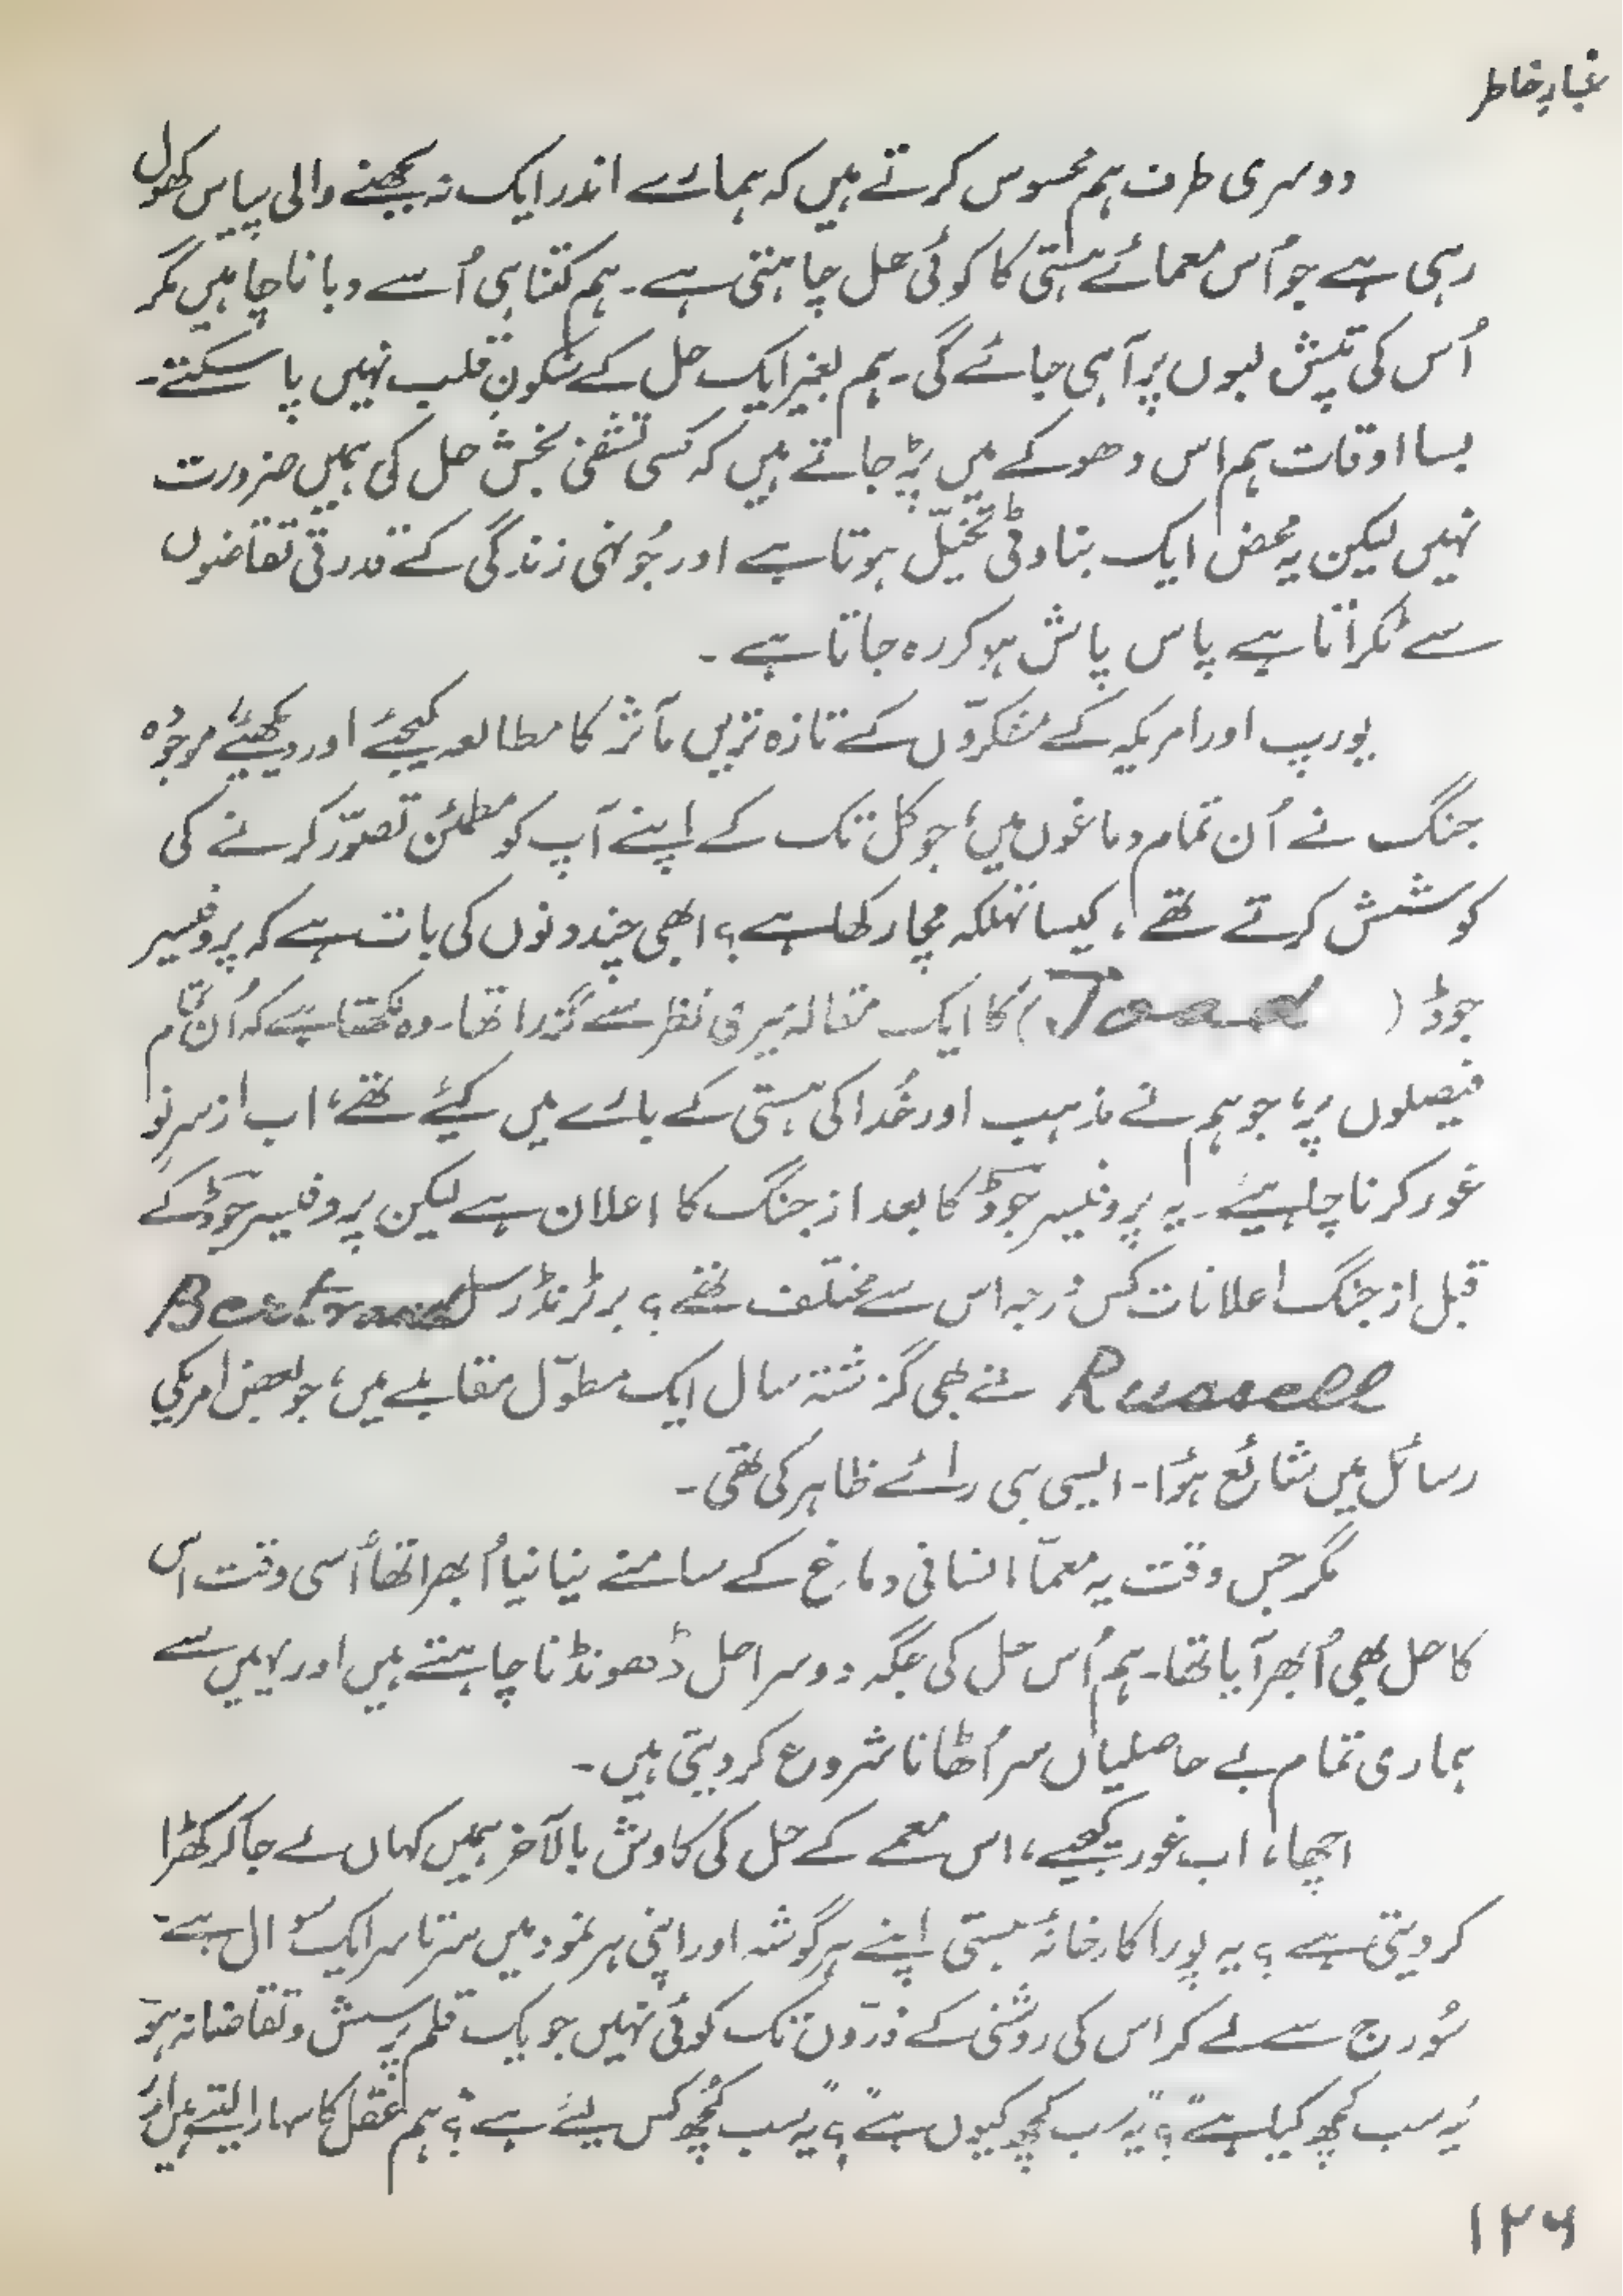 غبارِ خاطر
دوسری طرف ہم محسوس کرتے ہیں کہ ہمارے اندر ایک نہ بجھنے والی پیاس کھول
رہی ہے جو اُس معمائے ہستی کا کوئی حل چاہتی ہے۔ ہم کتنا ہی اُسے دبانا چاہیں مگر
اُس کی تپش لبوں پر آ ہی جائے گی۔ ہم بغیر ایک حل کے سکونِ قلب نہیں پا سکتے۔
بسا اوقات ہم اس دھوکے میں پڑ جاتے ہیں کہ کسی تشفی بخش حل کی ہمیں ضرورت
نہیں لیکن یہ محض ایک بناوٹی تخیّل ہوتا ہے اور جُونہی زندگی کے قدرتی تقاضوں
سے ٹکراتا ہے پاس پاش ہو کر رہ جاتا ہے۔
یورپ اور امریکہ کے مفکرّوں کے تازہ تریں مآثر کا مطالعہ کیجئے اور دیکھئے موجُوہ
جنگ نے اُن تمام دماغوں میں، جو کل تک کے اپنے آپ کو مطمئن تصوّر کرنے کی
کوشش کرتے تھے، کیسا تہلکہ مچا رکھا ہے؟ ابھی چند دنوں کی بات ہے کہ پروفیسر
جوڈ (Joad) کا ایک مقالہ میری نظر سے گزرا تھا۔ وہ لکھتا ہے کہ اُن تمام
فیصلوں پر، جو ہم نے مذہب اور خُدا کی ہستی کے بارے میں کیئے تھے، اب از سرِ نو
غور کرنا چاہیئے۔ یہ پروفیسر جوڈ کا بعد از جنگ کا اعلان ہے لیکن پروفیسر جوڈ کے
قبل از جنگ اعلانات کس دُرجہ اس سے مختلف تھے؟ برٹرنڈ رسل Bertrand
Russell نے بھی گزشتہ سال ایک مطوّل مقالے میں، جو بعض امریکی
رسائل میں شائع ہؤا۔ ایسی ہی رائے ظاہر کی تھی۔
مگر جس وقت یہ معمّا انسانی دماغ کے سامنے نیا نیا اُبھرا تھا اُسی وقت اس
کا حل بھی اُبھر آیا تھا۔ ہم اُس حل کی جگہ دوسرا حل ڈھونڈنا چاہتے ہیں اور یہیں سے
ہماری تمام بے حاصلیاں سر اُٹھانا شروع کر دیتی ہیں۔
اچھا، اب غور کیجیے، اس معمے کے حل کی کاوش بالآخر ہمیں کہاں لے جا کر کھڑا
کر دیتی ہے؟ یہ پورا کارخانۂ ہستی اپنے ہر گوشہ اور اپنی ہر نمود میں سر تا سر ایک سُوال ہے۔
سُورج سے لے کر اس کی روشنی کے ذرّوں تک کوئی نہیں جو یک قلم پرسش و تقاضا نہ ہو
یہ سب کچھ کیا ہے؟ "یہ سب کچھ کیوں ہے"؟ "یہ سب کچھ کس لیئے ہے"؟ ہم عقل کا سہارا لیتے ہیں اور
۱۲۶